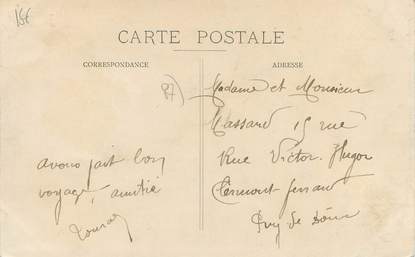 15€
CARTE POSTALE
CORRESPONDANCE
ADRESSE
87)
Madame et Monsieur
Massard 15 rue
Rue Victor-Hugo
Clermont-ferrand
Puy de Dôme
avons fait bon
voyage, amitié